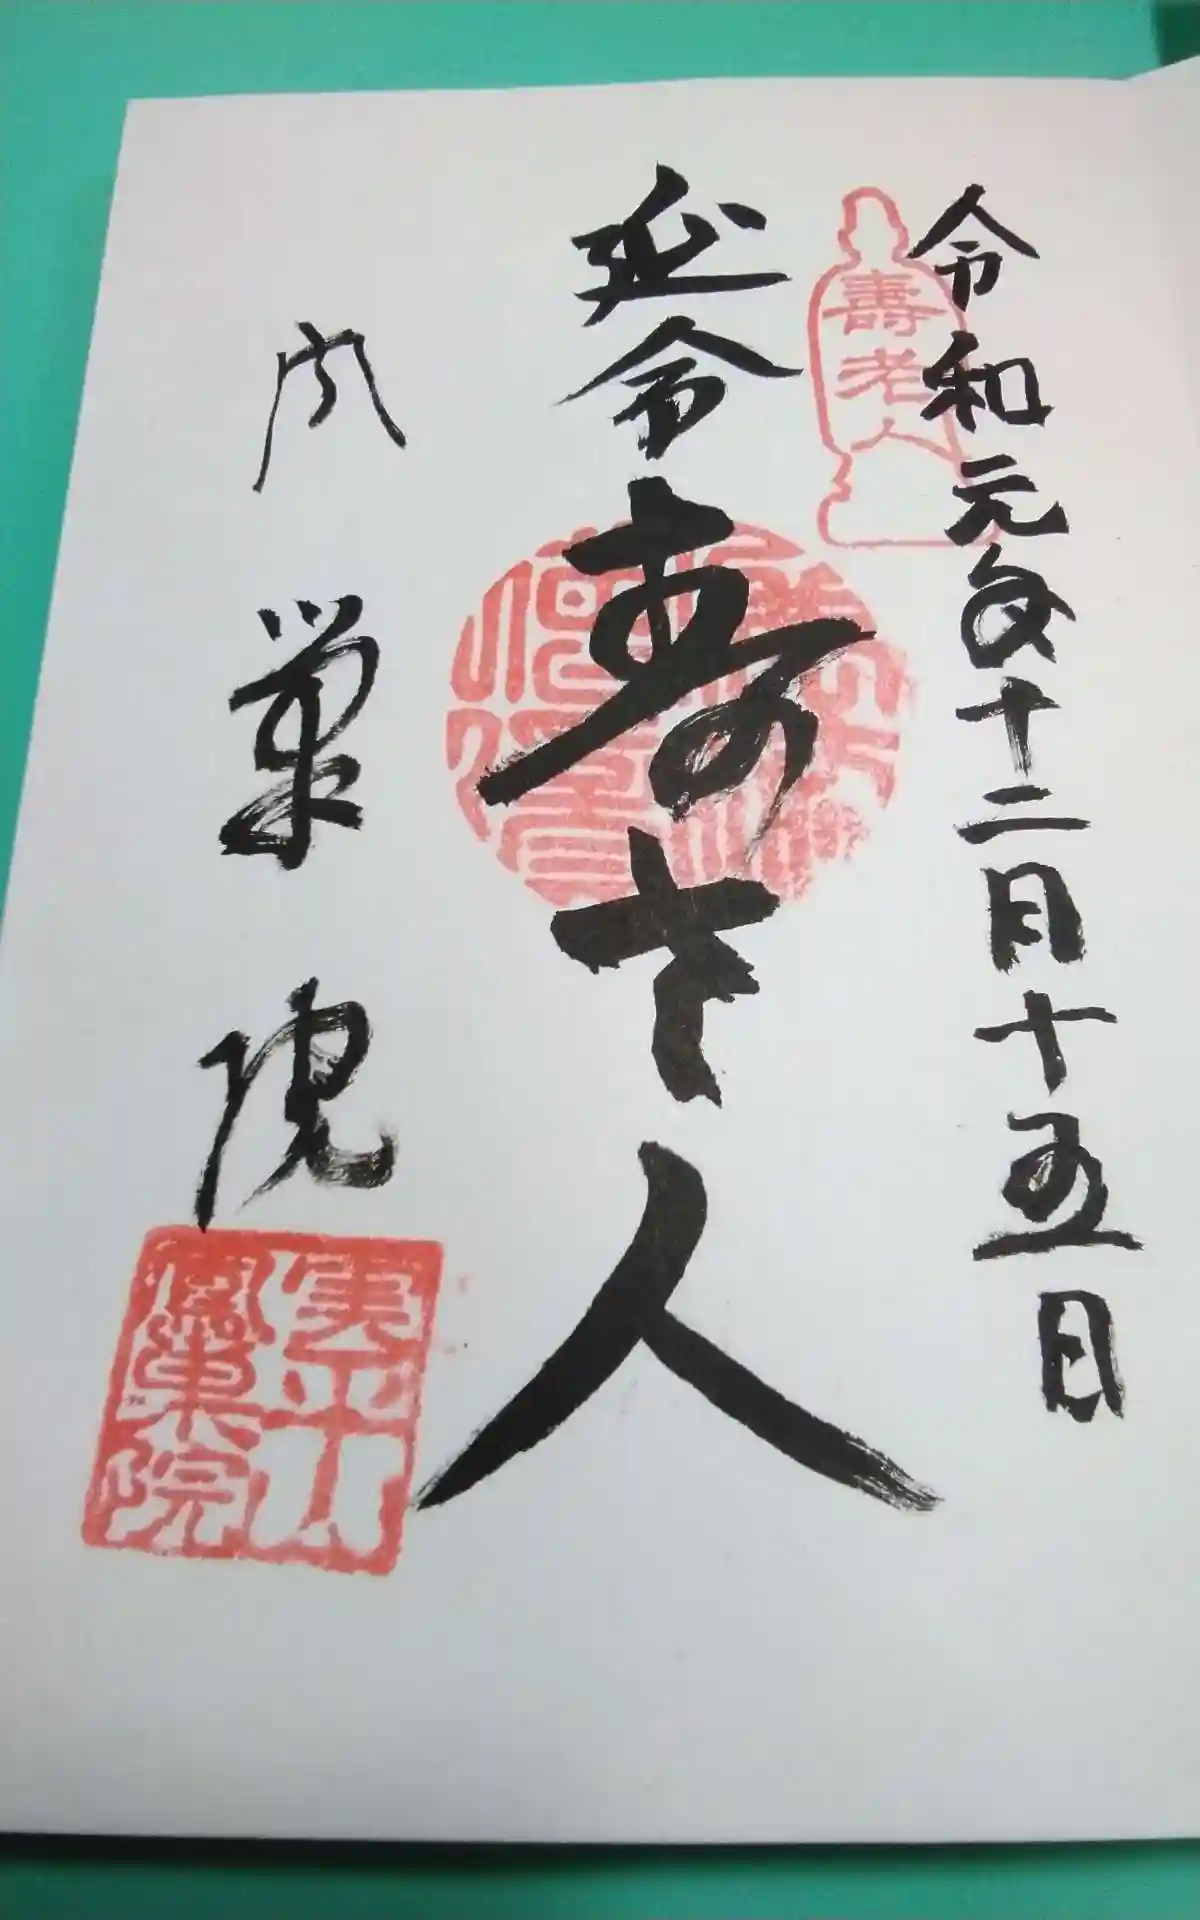 令和元年十二月十五日
壽老人
延命
寿老人
鳳巣院
鳳巣院